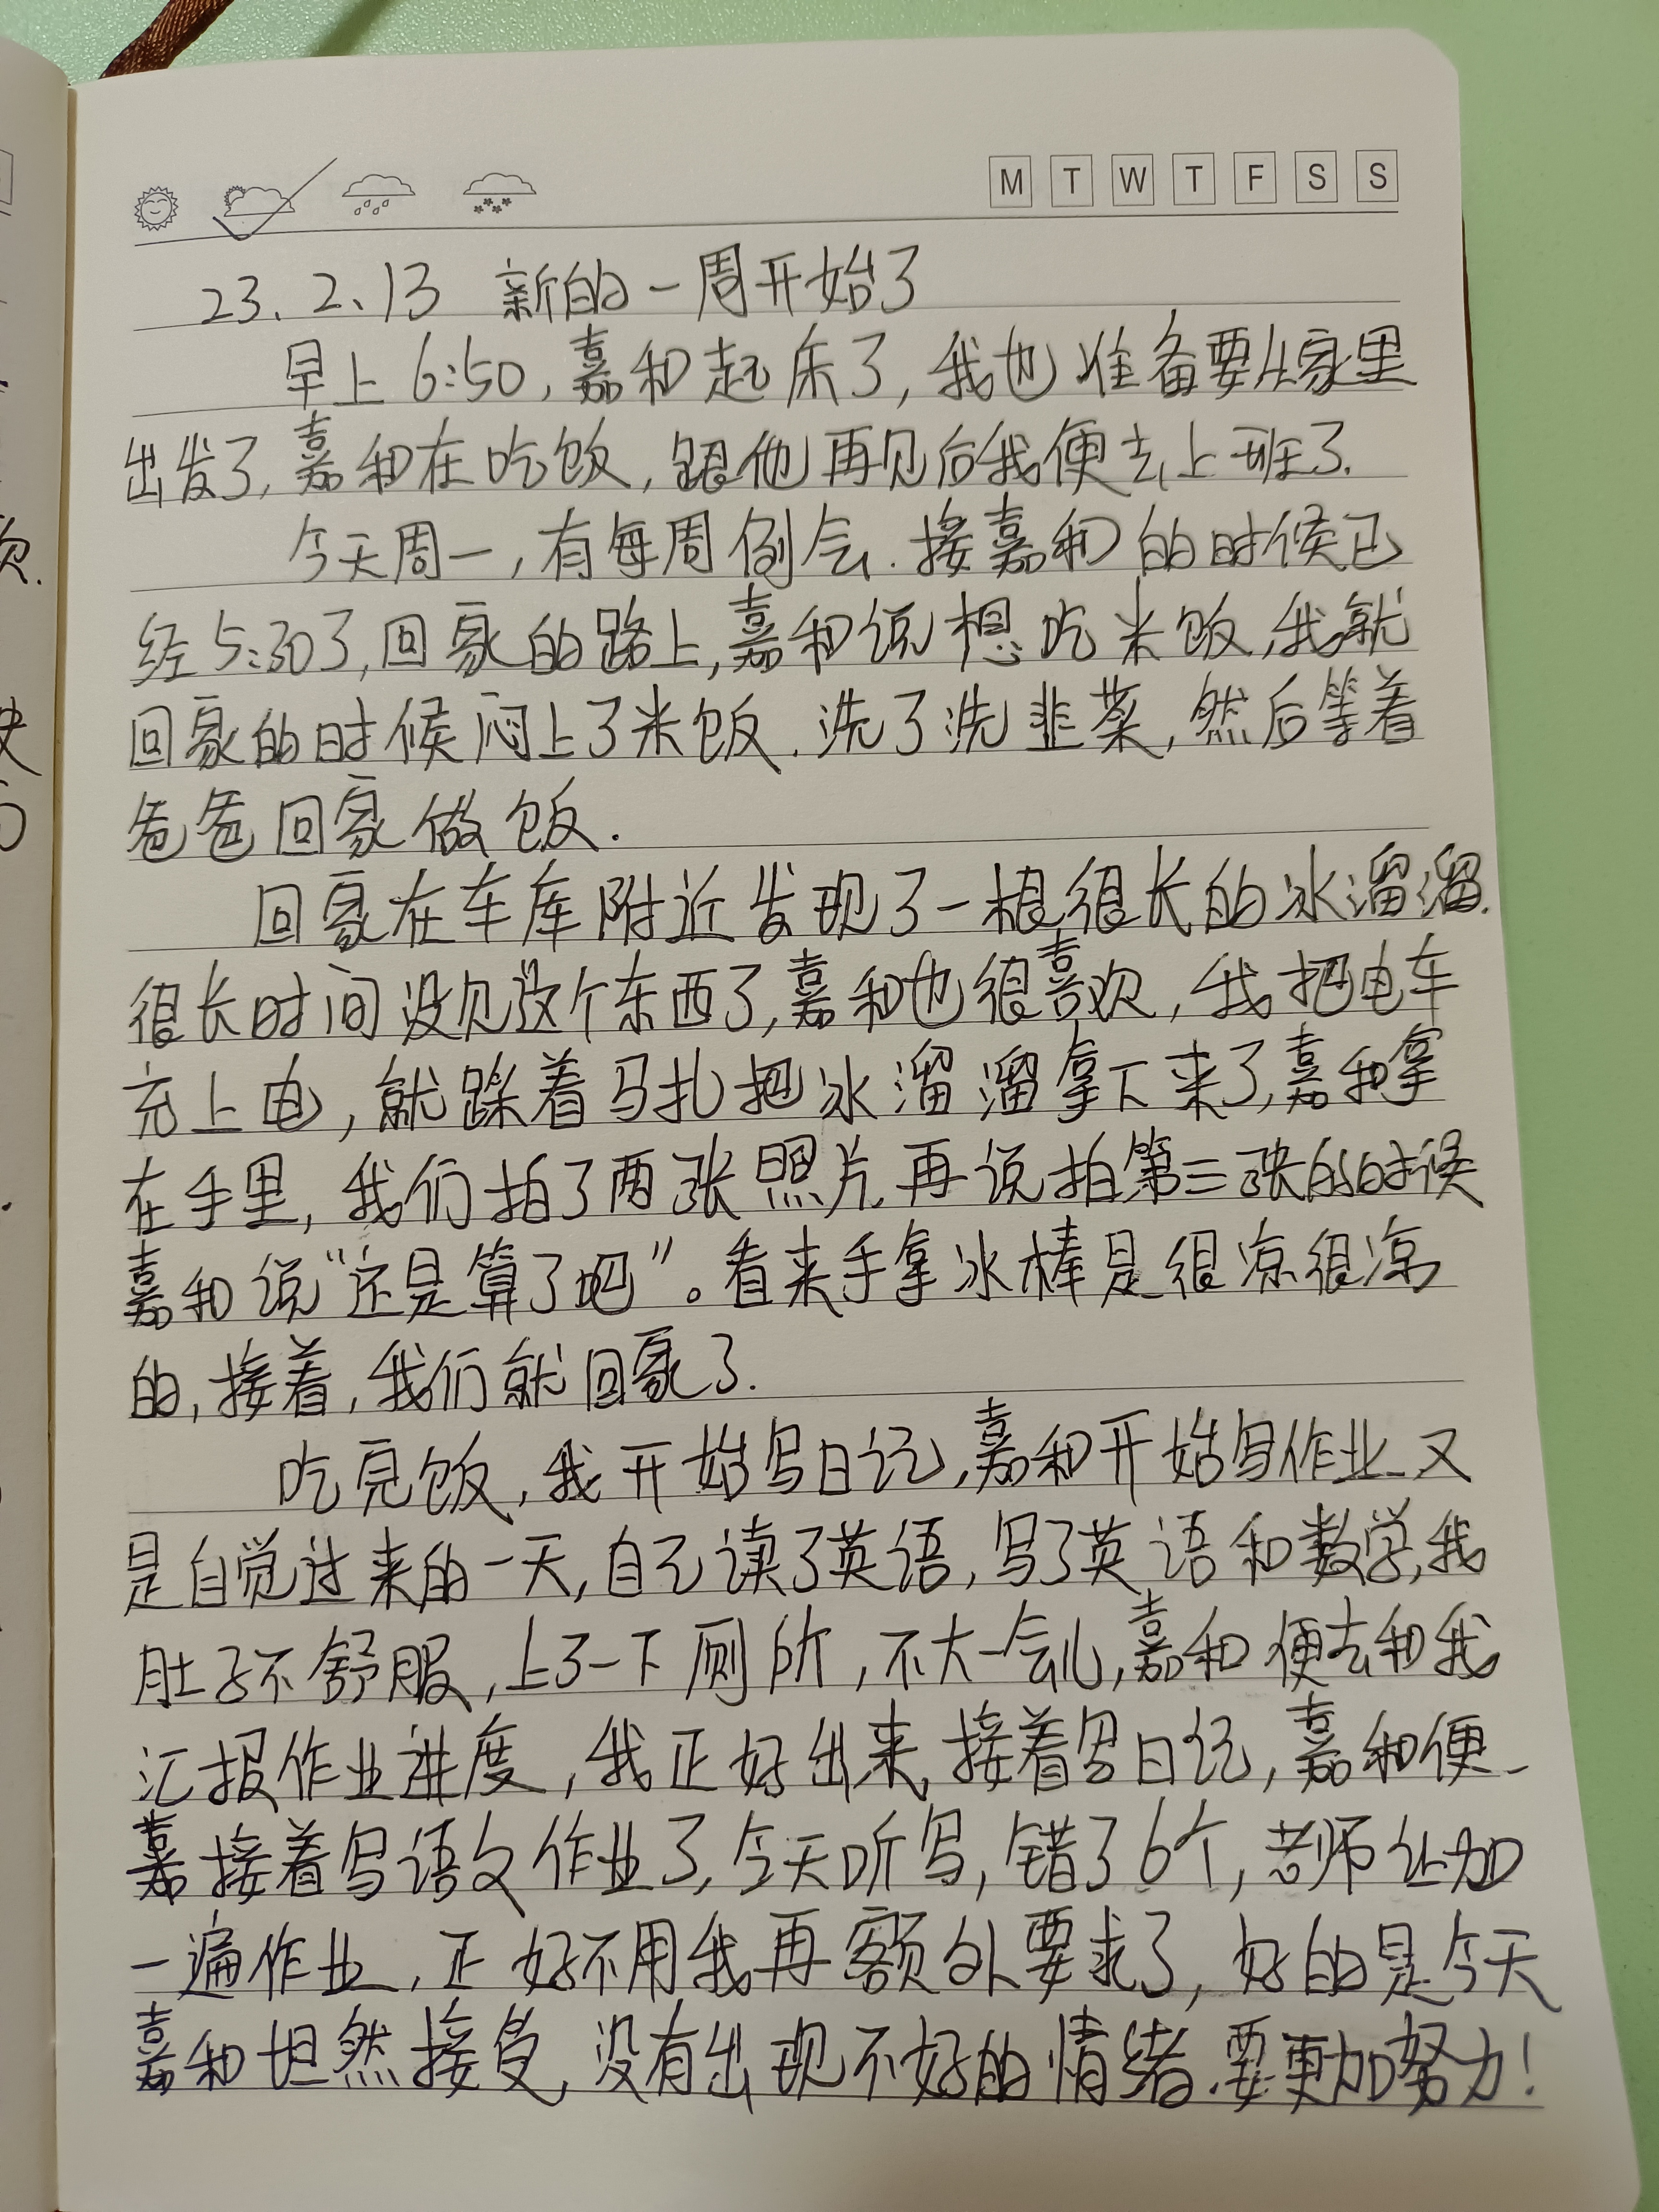 M T W T F S S
23.2.13 新的一周开始了
早上6:50,嘉和起床了,我也准备要从家里
出发了,嘉和在吃饭,跟他再见后我便去上班了.
今天周一,有每周例会.接嘉和的时候已
经5:30了,回家的路上,嘉和说想吃米饭,我就
回家的时候闷上了米饭.洗了洗韭菜,然后等着
爸爸回家做饭.
回家在车库附近发现了一根很长的冰溜溜.
很长时间没见这个东西了,嘉和也很喜欢,我把电车
充上电,就踩着马扎把冰溜溜拿下来了,嘉和拿
在手里,我们拍了两张照片,再说拍第三张的时候
嘉和说“还是算了吧”。看来手拿冰棒是很凉很凉
的,接着,我们就回家了.
吃完饭,我开始写日记,嘉和开始写作业.又
是自觉过来的一天,自己读了英语,写了英语和数学,我
肚子不舒服,上了一下厕所,不大一会儿,嘉和便去和我
汇报作业进度,我正好出来,接着写日记,嘉和便
嘉接着写语文作业了,今天听写,错了6个,老师让加
一遍作业,正好不用我再额外要求了,好的是今天
嘉和坦然接受,没有出现不好的情绪.要更加努力!